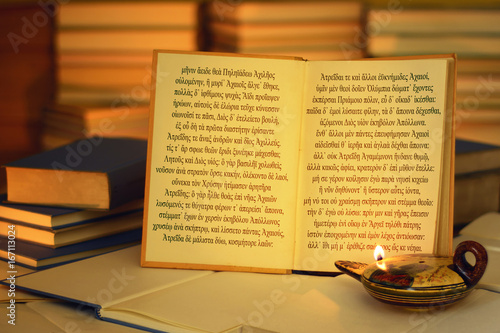 μῆνιν ἄειδε θεὰ Πηληϊάδεω Ἀχιλῆος
οὐλομένην, ἣ μυρί᾽ Ἀχαιοῖς ἄλγε᾽ ἔθηκε,
πολλὰς δ᾽ ἰφθίμους ψυχὰς Ἄϊδι προΐαψεν
ἡρώων, αὐτοὺς δὲ ἑλώρια τεῦχε κύνεσσιν
οἰωνοῖσί τε πᾶσι, Διὸς δ᾽ ἐτελείετο βουλή,
ἐξ οὗ δὴ τὰ πρῶτα διαστήτην ἐρίσαντε
Ἀτρεΐδης τε ἄναξ ἀνδρῶν καὶ δῖος Ἀχιλλεύς.
τίς τ᾽ ἄρ σφωε θεῶν ἔριδι ξυνέηκε μάχεσθαι;
Λητοῦς καὶ Διὸς υἱός: ὃ γὰρ βασιλῆϊ χολωθεὶς
νοῦσον ἀνὰ στρατὸν ὄρσε κακήν, ὀλέκοντο δὲ λαοί,
οὕνεκα τὸν Χρύσην ἠτίμασεν ἀρητῆρα
Ἀτρεΐδης: ὃ γὰρ ἦλθε θοὰς ἐπὶ νῆας Ἀχαιῶν
λυσόμενός τε θύγατρα φέρων τ᾽ ἀπερείσι᾽ ἄποινα,
στέμματ᾽ ἔχων ἐν χερσὶν ἑκηβόλου Ἀπόλλωνος
χρυσέῳ ἀνὰ σκήπτρῳ, καὶ λίσσετο πάντας Ἀχαιούς,
Ἀτρεΐδα δὲ μάλιστα δύω, κοσμήτορε λαῶν:
Ἀτρεΐδαι τε καὶ ἄλλοι ἐϋκνήμιδες Ἀχαιοί,
ὑμῖν μὲν θεοὶ δοῖεν Ὀλύμπια δώματ᾽ ἔχοντες
ἐκπέρσαι Πριάμοιο πόλιν, εὖ δ᾽ οἴκαδ᾽ ἱκέσθαι:
παῖδα δ᾽ ἐμοὶ λύσαιτε φίλην, τὰ δ᾽ ἄποινα δέχεσθαι,
ἁζόμενοι Διὸς υἱὸν ἑκηβόλον Ἀπόλλωνα.
ἔνθ᾽ ἄλλοι μὲν πάντες ἐπευφήμησαν Ἀχαιοὶ
αἰδεῖσθαί θ᾽ ἱερῆα καὶ ἀγλαὰ δέχθαι ἄποινα:
ἀλλ᾽ οὐκ Ἀτρεΐδῃ Ἀγαμέμνονι ἥνδανε θυμῷ,
ἀλλὰ κακῶς ἀφίει, κρατερὸν δ᾽ ἐπὶ μῦθον ἔτελλε:
μή σε γέρον κοίλῃσιν ἐγὼ παρὰ νηυσὶ κιχείω
ἢ νῦν δηθύνοντ᾽ ἢ ὕστερον αὖτις ἰόντα,
μή νύ τοι οὐ χραίσμῃ σκῆπτρον καὶ στέμμα θεοῖο:
τὴν δ᾽ ἐγὼ οὐ λύσω: πρίν μιν καὶ γῆρας ἔπεισιν
ἡμετέρῳ ἐνὶ οἴκῳ ἐν Ἄργεϊ τηλόθι πάτρης
ἱστὸν ἐποιχομένην καὶ ἐμὸν λέχος ἀντιόωσαν:
ἀλλ᾽ ἴθι μή μ᾽ ἐρέθιζε σαώτερος ὥς κε νέηαι.
167113024